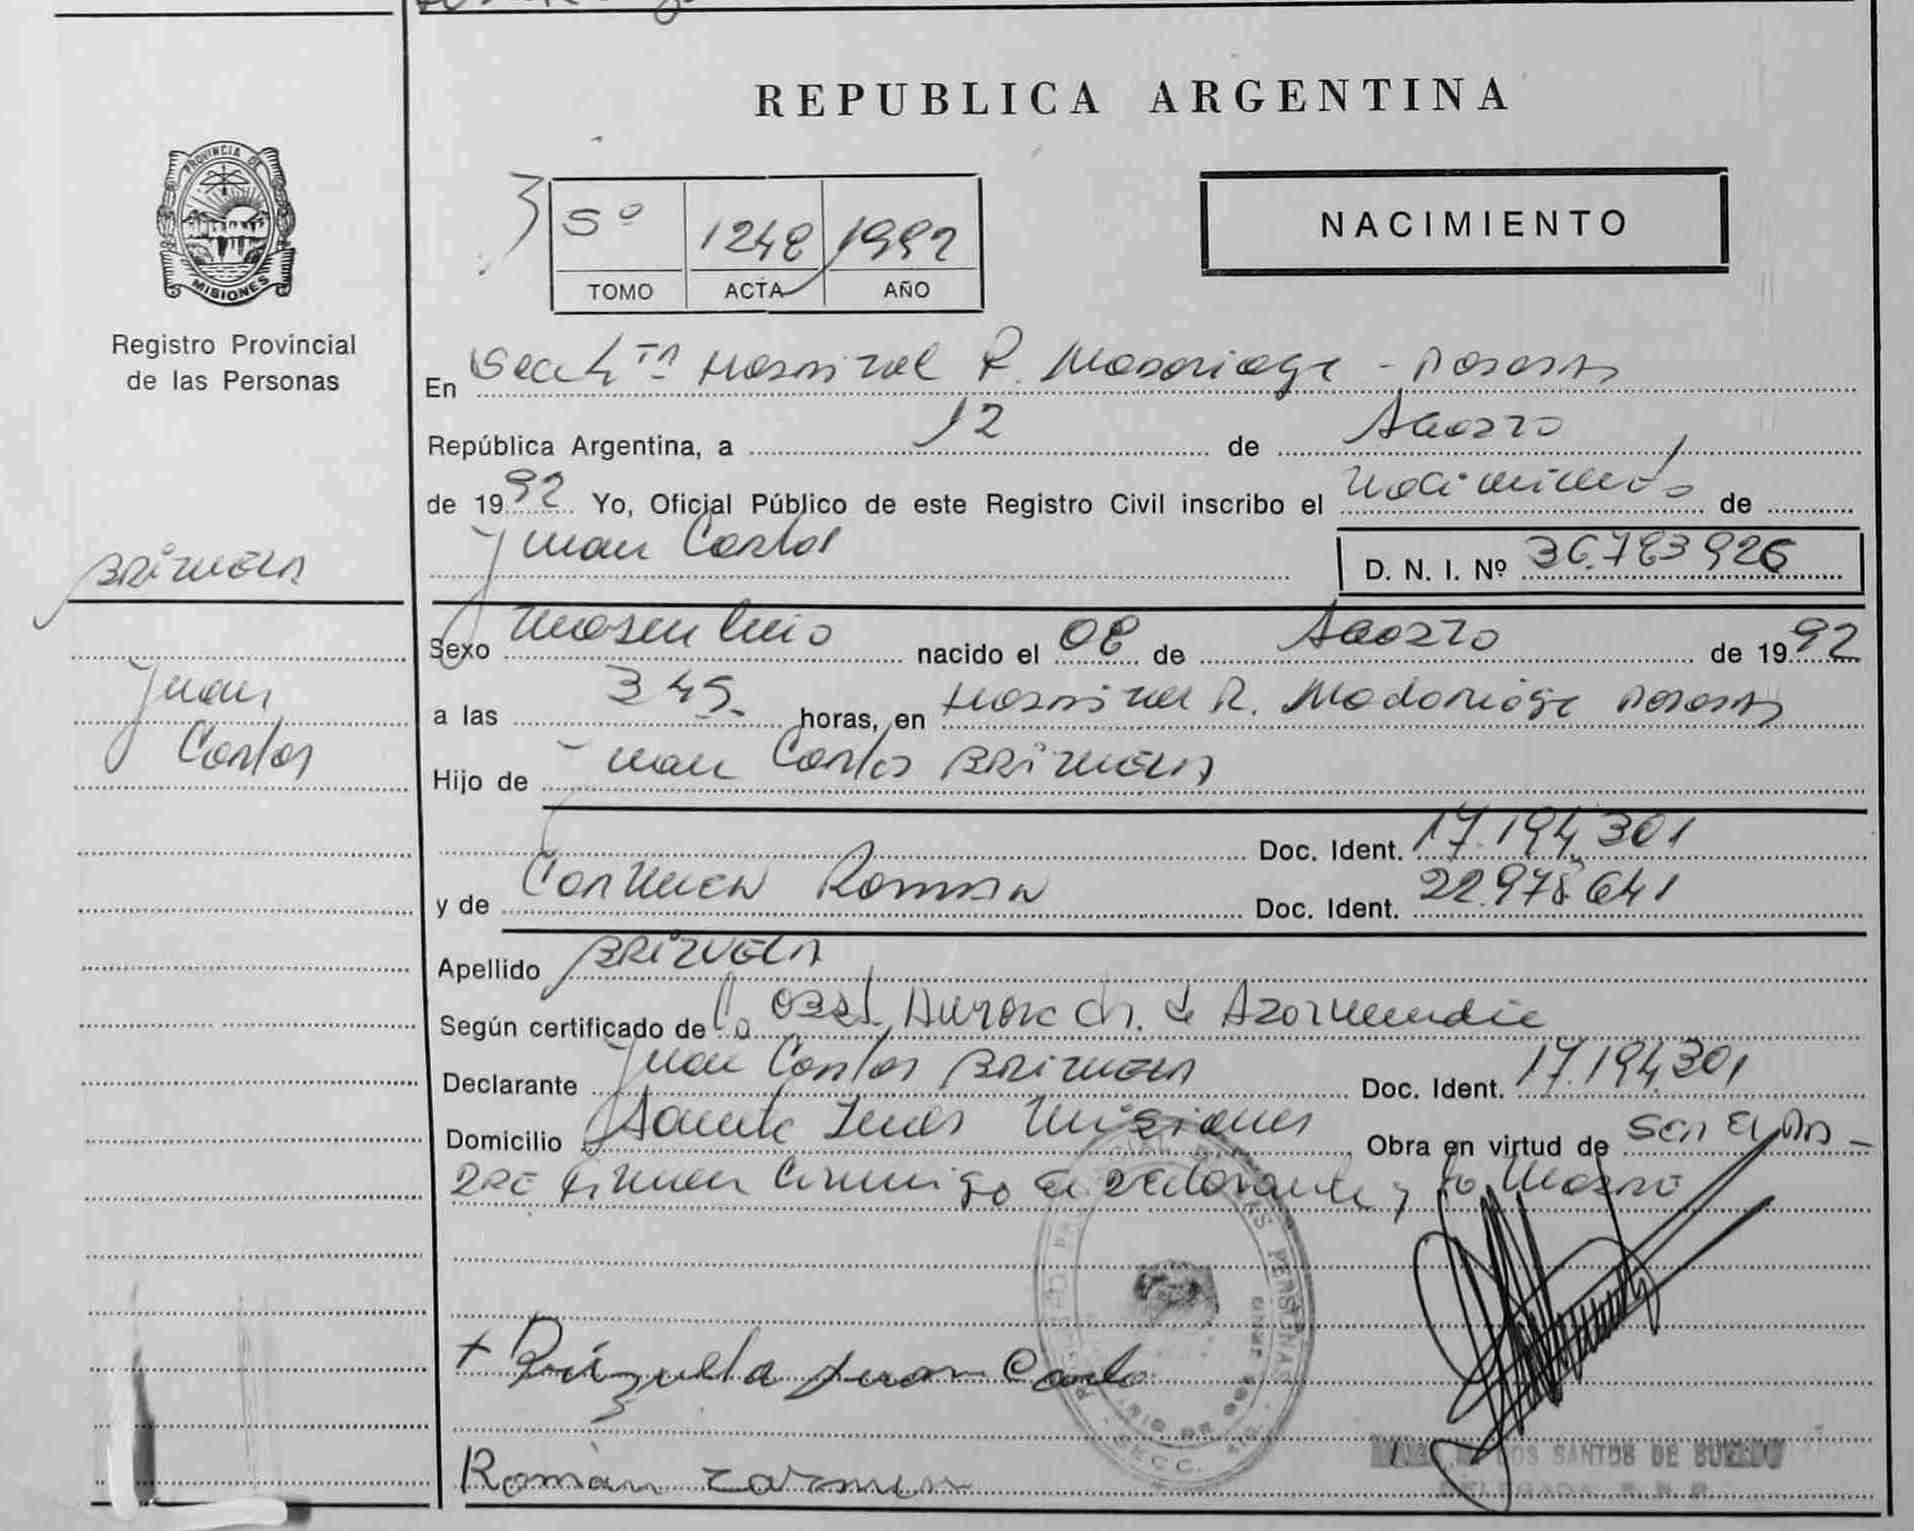 REPUBLICA ARGENTINA
PROVINCIA DE
MISIONES
Registro Provincial
de las Personas
5º 1248 1992
TOMO ACTA AÑO
NACIMIENTO
En Secc 4ta Hospital R. Madariaga - Posadas
República Argentina, a 12 de Agosto
de 1992 Yo, Oficial Público de este Registro Civil inscribo el nacimiento de
Juan Carlos
D. N. I. Nº 36.783926
BRIZUELA
Juan
Carlos
Sexo Masculino nacido el 08 de Agosto de 1992
a las 3 45 horas, en Hospital R. Madariaga Posadas
Hijo de Juan Carlos BRIZUELA
Doc. Ident. 17.194.301
y de Carmen Roman Doc. Ident. 22.978.641
Apellido BRIZUELA
Según certificado de la Obst. Aurora Ch. de Azarmendia
Declarante Juan Carlos BRIZUELA Doc. Ident. 17.194.301
Domicilio Santa Ines Misiones Obra en virtud de ser el pa-
dre firman conmigo el declarante y la madre
+ Brizuela Juan Carlo
Román Carmen
SANTOS DE